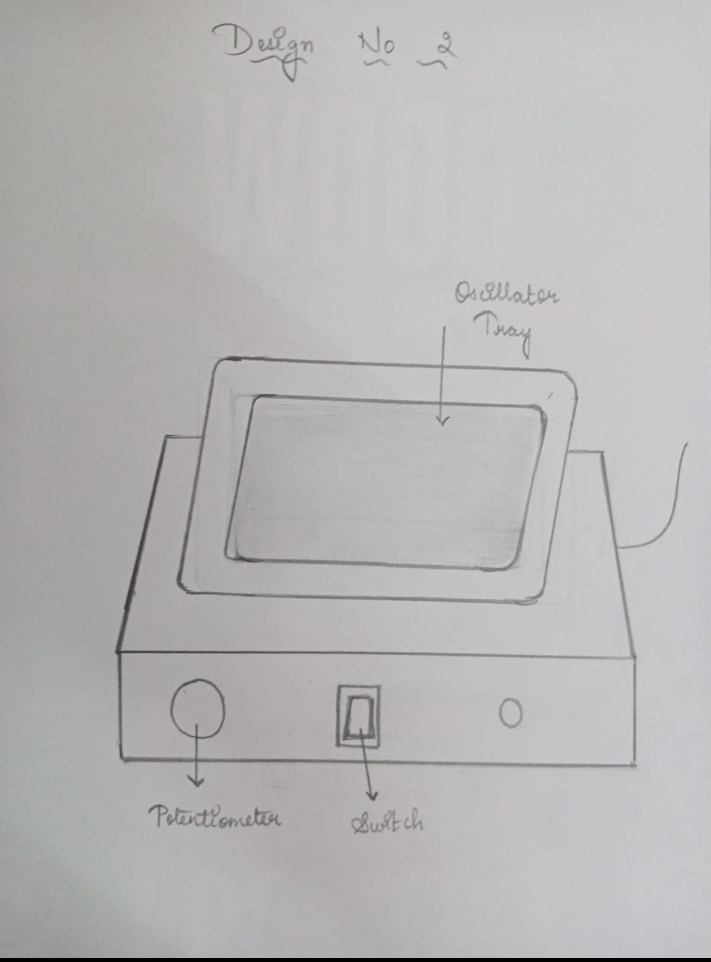 Design No 2
Oscillator
Tray
Potentiometer
Switch